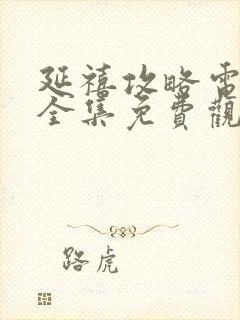 延禧攻略電
全集免費觀
路虎